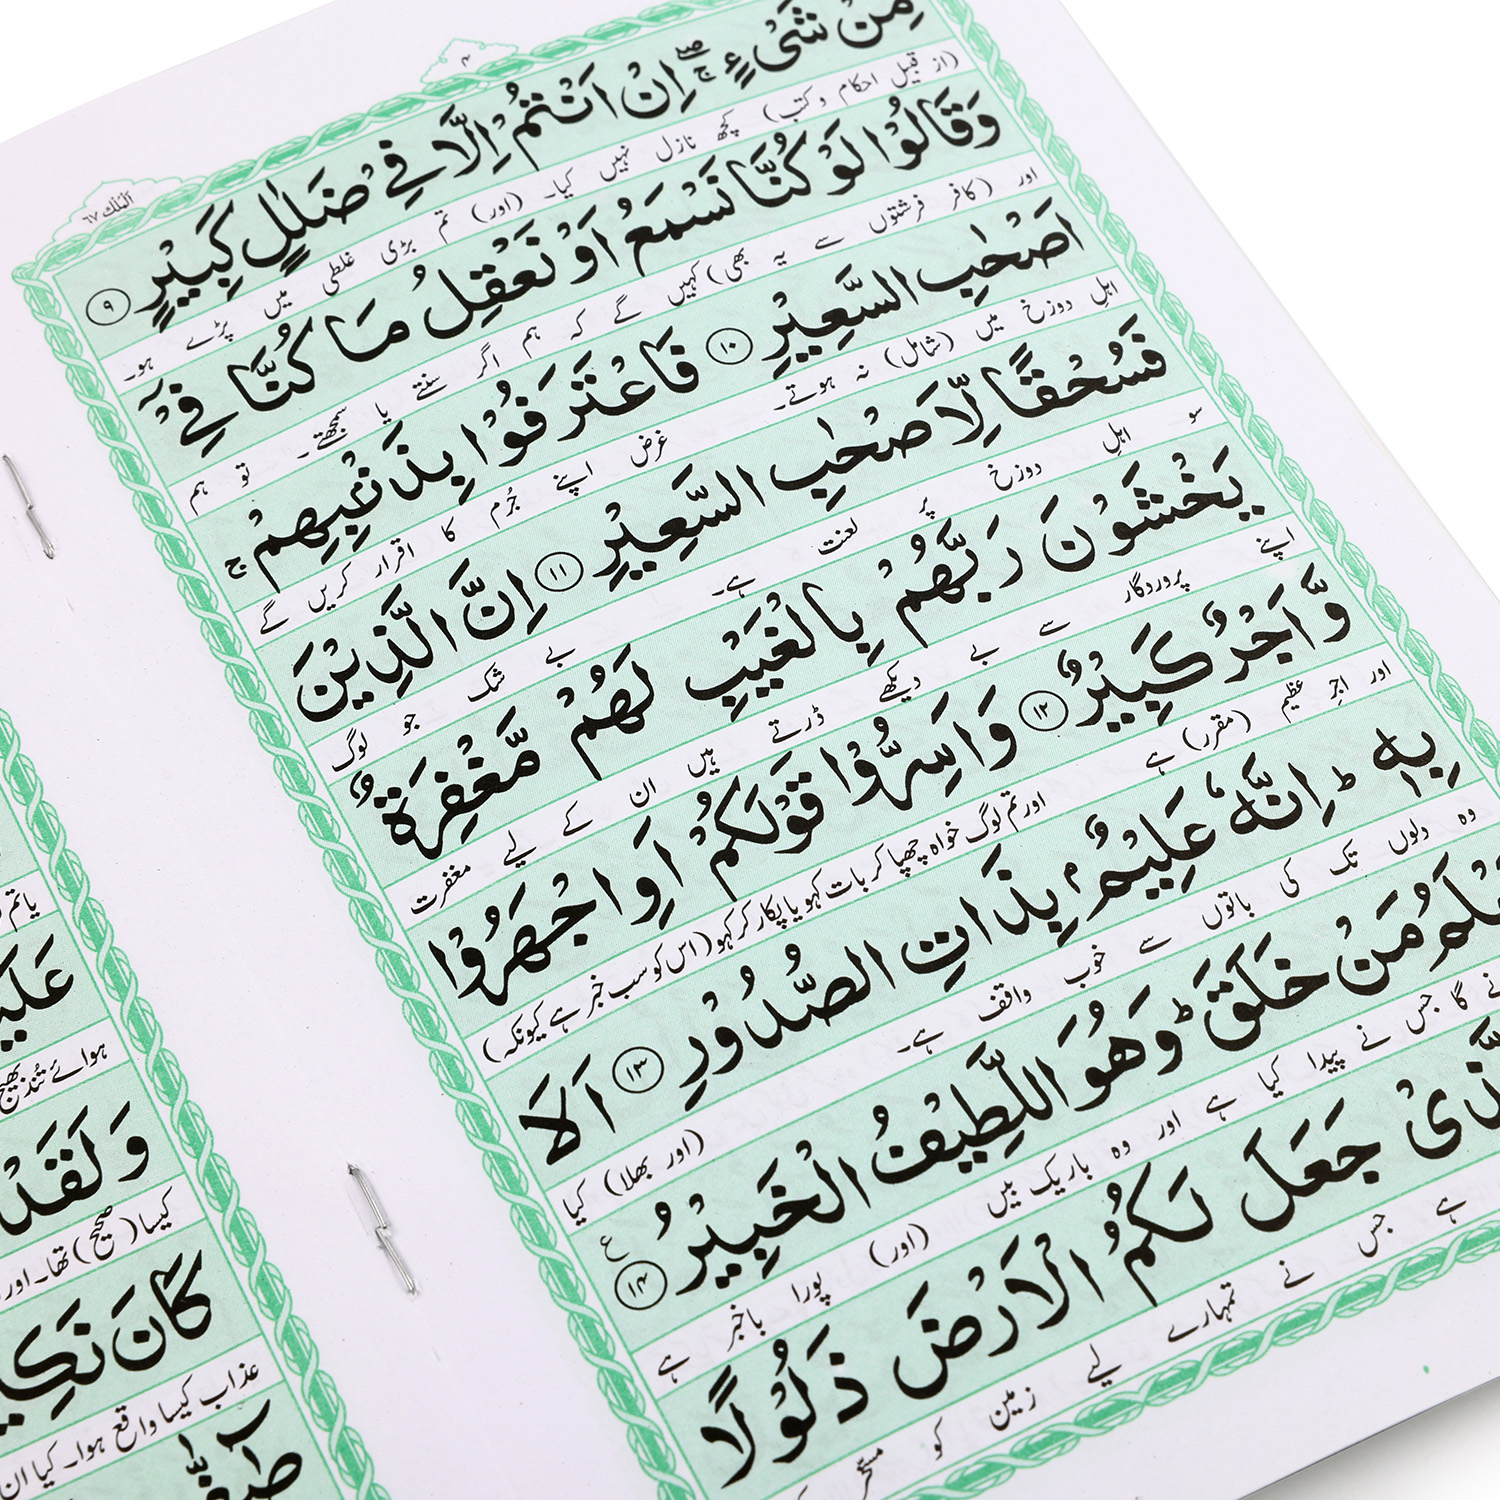 الملک ٦٧
٤
مِنْ شَىْءٍ ۖۚ اِنْ اَنْتُمْ اِلَّا فِيْ ضَلٰلٍ كَبِيْرٍ ٩
(از قبیل احکام و کتب) کچھ نازل نہیں کیا۔ (اور) تم بڑی غلطی میں پڑے ہو۔
وَقَالُوْا لَوْ كُنَّا نَسْمَعُ اَوْ نَعْقِلُ مَا كُنَّا فِيْٓ
اور (کافر فرشتوں سے یہ بھی) کہیں گے کہ ہم اگر سنتے یا سمجھتے۔ تو ہم
اَصْحٰبِ السَّعِيْرِ ١٠ فَاعْتَرَفُوْا بِذَنْۢبِهِمْ ۚ
اہل دوزخ میں (شامل) نہ ہوتے۔ غرض اپنے جُرم کا اقرار کریں گے
فَسُحْقًا لِّاَصْحٰبِ السَّعِيْرِ ١١ اِنَّ الَّذِيْنَ
سو اہلِ دوزخ پر لعنت ہے۔ بے شک جو لوگ
يَخْشَوْنَ رَبَّهُمْ بِالْغَيْبِ لَهُمْ مَّغْفِرَةٌ
اپنے پروردگار سے بے دیکھے ڈرتے ہیں ان کے لیے مغفرت
وَّاَجْرٌ كَبِيْرٌ ١٢ وَاَسِرُّوْا قَوْلَكُمْ اَوِ اجْهَرُوْا
اور اجرِ عظیم (مقرر) ہے اور تم لوگ خواہ چھپا کر بات کہو یا پکار کر کہو (اس کو سب خبر ہے کیونکہ)
بِهٖ ؕ اِنَّهٗ عَلِيْمٌۢ بِذَاتِ الصُّدُوْرِ ١٣ اَلَا
وہ دلوں تک کی باتوں سے خوب واقف ہے۔ (اور بھلا) کیا
يَعْلَمُ مَنْ خَلَقَ ؕ وَهُوَ اللَّطِيْفُ الْخَبِيْرُ ١٤ ع
نے گا جس نے پیدا کیا ہے اور وہ باریک بیں (اور) پورا باخبر ہے
الَّذِىْ جَعَلَ لَكُمُ الْاَرْضَ ذَلُوْلًا
ہے جس نے تمہارے لیے زمین کو مسخر
یا تم
عَلَيْ
ہوائے تُند بھیج
وَلَقَدْ
کیسا (صحیح) تھا۔ اور
كَانَ نَكِيْ
عذاب کیسا واقع ہوا۔ کیا ان